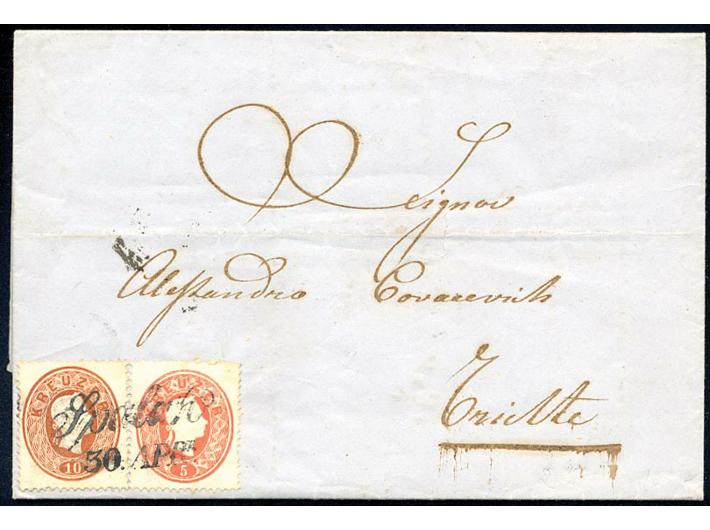 Signor
Alessandro Covacevich
Trieste
KREUZER KREUZER
30. APR
10 5